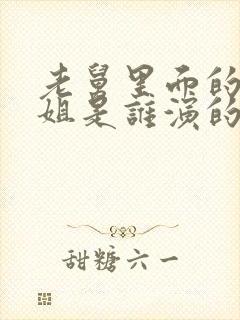 老舅里面的
姐是誰演的
甜糖六一